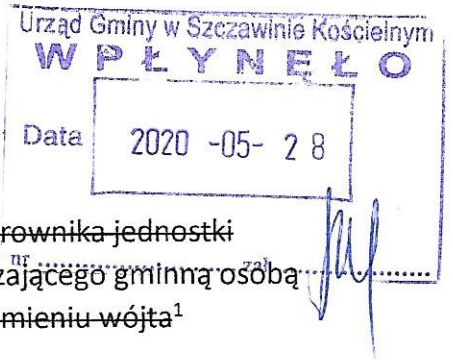 Urząd Gminy w Szczawinie Kościelnym
WPŁYNĘŁO
Data 2020 -05- 28
rownika jednostki
nr ........ zał. ........
zającego gminną osobą
mieniu wójta¹